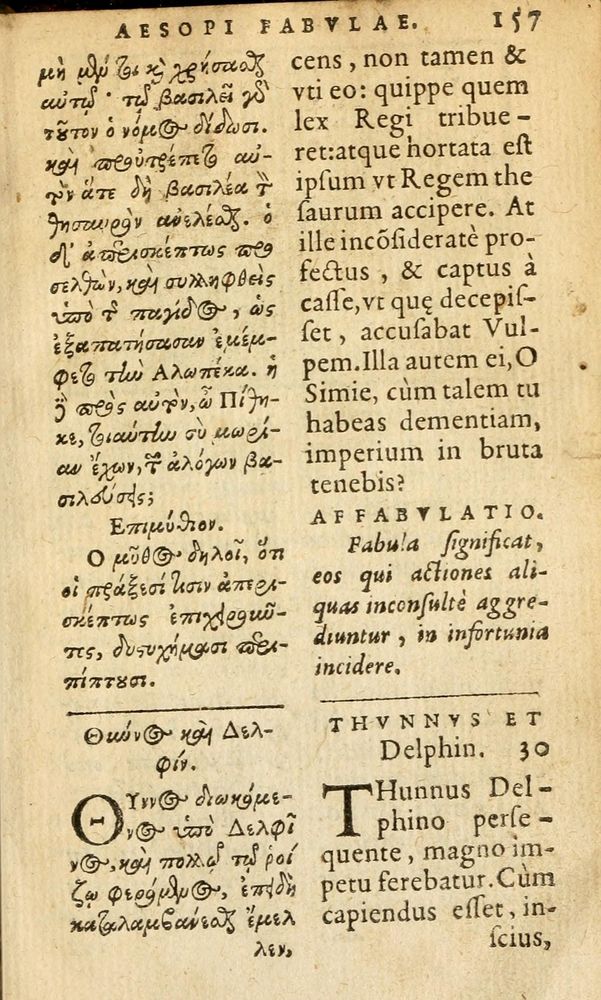 AESOPI FABVLAE. 157
μὴ μέν τοι καὶ χρήσασθαι
αὐτῷ· τῷ βασιλεῖ γὸ
τοῦτον ὁ νόμος δίδωσι.
καὶ προὐτρέπετο αὐ-
τὸν ἅτε δὴ βασιλέα τὸν
θησαυρὸν ἀνελέσθαι. ὁ
δ' ἀπερισκέπτως προ
σελθὼν, καὶ συλληφθεὶς
ὑπὸ τῆς παγίδος, ὡς
ἐξαπατήσασαν ἐμέμ-
φετο τὴν Αλωπέκα. ἡ
δὲ πρὸς αὐτὸν, ὦ Πίθη-
κε, τοιαύτην σὺ μωρί-
αν ἔχων, τῶν ἀλόγων βα-
σιλεύσεις;
Επιμύθιον.
Ο μῦθος δηλοῖ, ὅτι
οἱ πράξεσί τισιν ἀπερι-
σκέπτως ἐπιχειροῦν-
τες, δυστυχήμασι περι-
πίπτουσι.
Θύννος καὶ Δελ-
φίν.
ΘΥννος διωκόμε-
νος ὑπὸ Δελφῖ
νος, καὶ πολλῷ τῷ ῥοί
ζῳ φερόμενος, ἐπειδὴ
καταλαμβάνεσθαι ἔμελ
λεν,
cens, non tamen &
vti eo: quippe quem
lex Regi tribue-
ret: atque hortata est
ipsum vt Regem the
saurum accipere. At
ille incōsideratè pro-
fectus, & captus à
casse, vt quę decepis-
set, accusabat Vul-
pem. Illa autem ei, O
Simie, cùm talem tu
habeas dementiam,
imperium in bruta
tenebis?
AFFABVLATIO.
Fabula significat,
eos qui actiones ali-
quas inconsultè aggre-
diuntur, in infortunia
incidere.
THVNNVS ET
Delphin. 30
THunnus Del-
phino perse-
quente, magno im-
petu ferebatur. Cùm
capiendus esset, in-
scius,